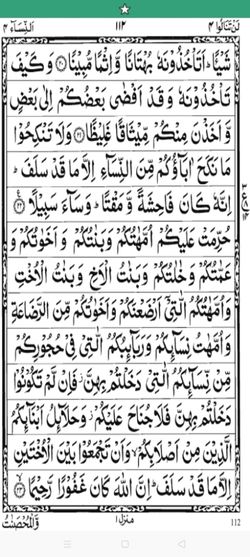 لَنْ تَنَالُوا ٤ ١١٢ اَلنِّسَآء ٤
شَيْـًٔا ؕ اَتَاْخُذُوْنَهٗ بُهْتَانًا وَّ اِثْمًا مُّبِيْنًا ﴿۲۰﴾ وَ كَيْفَ
تَاْخُذُوْنَهٗ وَ قَدْ اَفْضٰى بَعْضُكُمْ اِلٰى بَعْضٍ
وَّ اَخَذْنَ مِنْكُمْ مِّيْثَاقًا غَلِيْظًا ﴿۲۱﴾ وَ لَا تَنْكِحُوْا
مَا نَكَحَ اٰبَآؤُكُمْ مِّنَ النِّسَآءِ اِلَّا مَا قَدْ سَلَفَ ؕ
اِنَّهٗ كَانَ فَاحِشَةً وَّ مَقْتًا ؕ وَ سَآءَ سَبِيْلًا ﴿۲۲﴾
حُرِّمَتْ عَلَيْكُمْ اُمَّهٰتُكُمْ وَ بَنٰتُكُمْ وَ اَخَوٰتُكُمْ وَ
عَمّٰتُكُمْ وَ خٰلٰتُكُمْ وَ بَنٰتُ الْاَخِ وَ بَنٰتُ الْاُخْتِ
وَ اُمَّهٰتُكُمُ الّٰتِيْۤ اَرْضَعْنَكُمْ وَ اَخَوٰتُكُمْ مِّنَ الرَّضَاعَةِ
وَ اُمَّهٰتُ نِسَآئِكُمْ وَ رَبَآئِبُكُمُ الّٰتِيْ فِيْ حُجُوْرِكُمْ
مِّنْ نِّسَآئِكُمُ الّٰتِيْ دَخَلْتُمْ بِهِنَّ ۫ فَاِنْ لَّمْ تَكُوْنُوْا
دَخَلْتُمْ بِهِنَّ فَلَا جُنَاحَ عَلَيْكُمْ ۫ وَ حَلَآئِلُ اَبْنَآئِكُمُ
الَّذِيْنَ مِنْ اَصْلَابِكُمْ ۙ وَ اَنْ تَجْمَعُوْا بَيْنَ الْاُخْتَيْنِ
اِلَّا مَا قَدْ سَلَفَ ؕ اِنَّ اللّٰهَ كَانَ غَفُوْرًا رَّحِيْمًا ﴿۲۳﴾
112 منزل ١ وَّالْمُحْصَنٰتُ